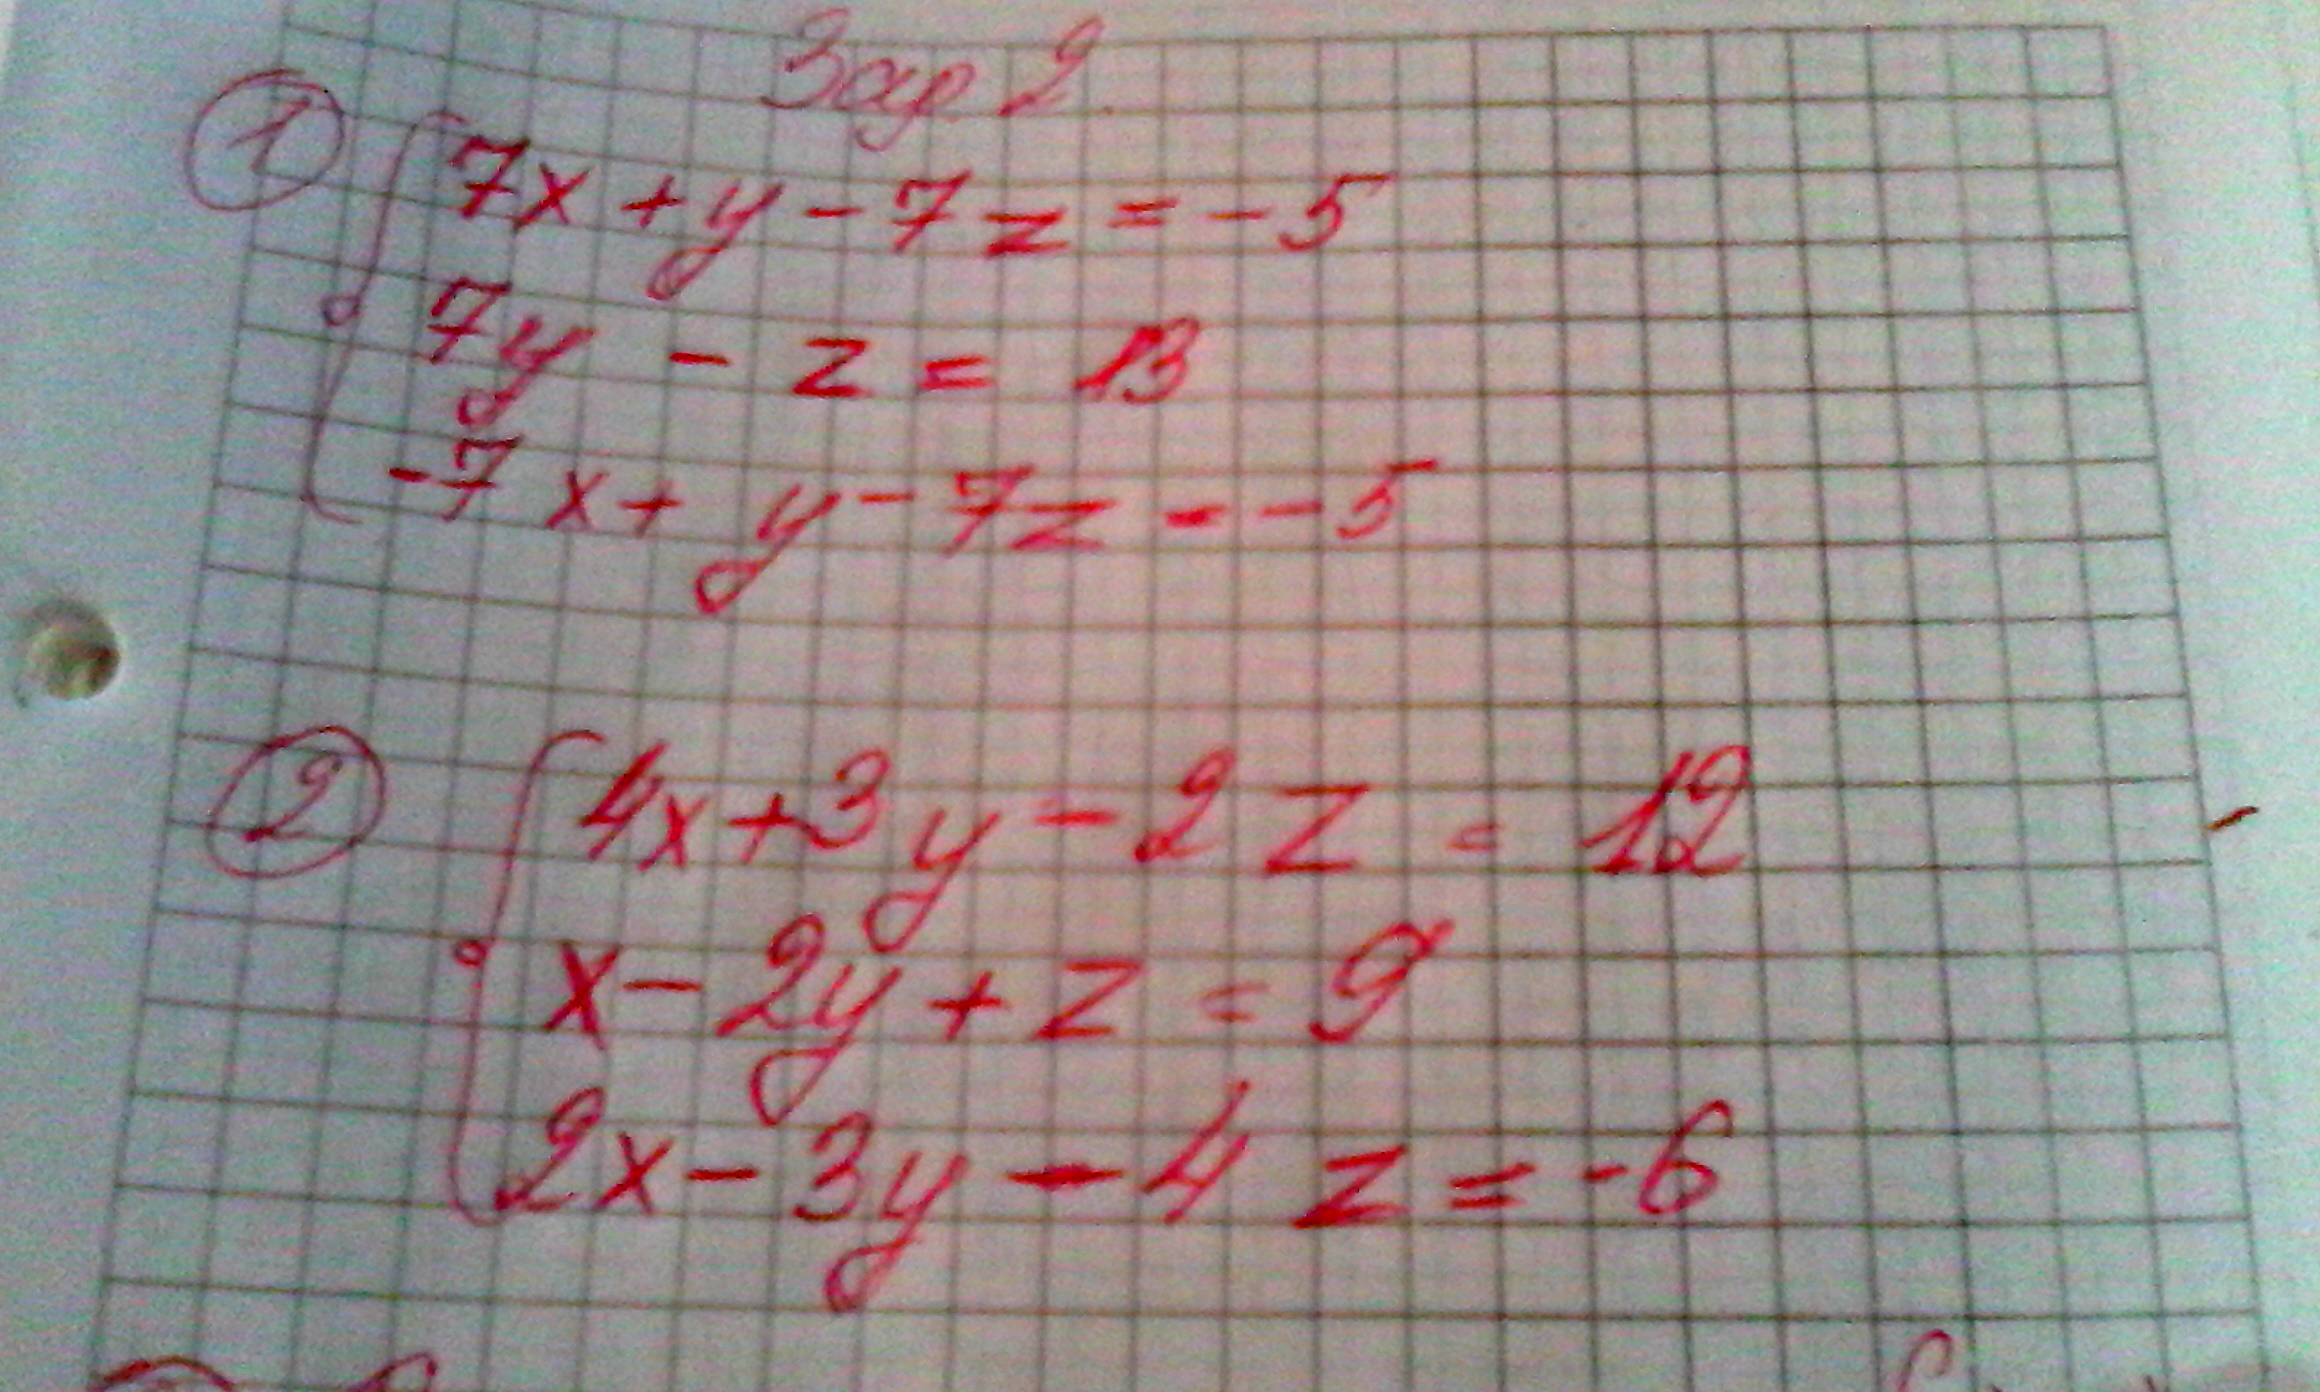 Зад 2.
① 7x + y - 7z = -5
7y - z = 13
-7x + y - 7z = -5
② 4x + 3y - 2z = 12
x - 2y + z = 9
2x - 3y - 4z = -6